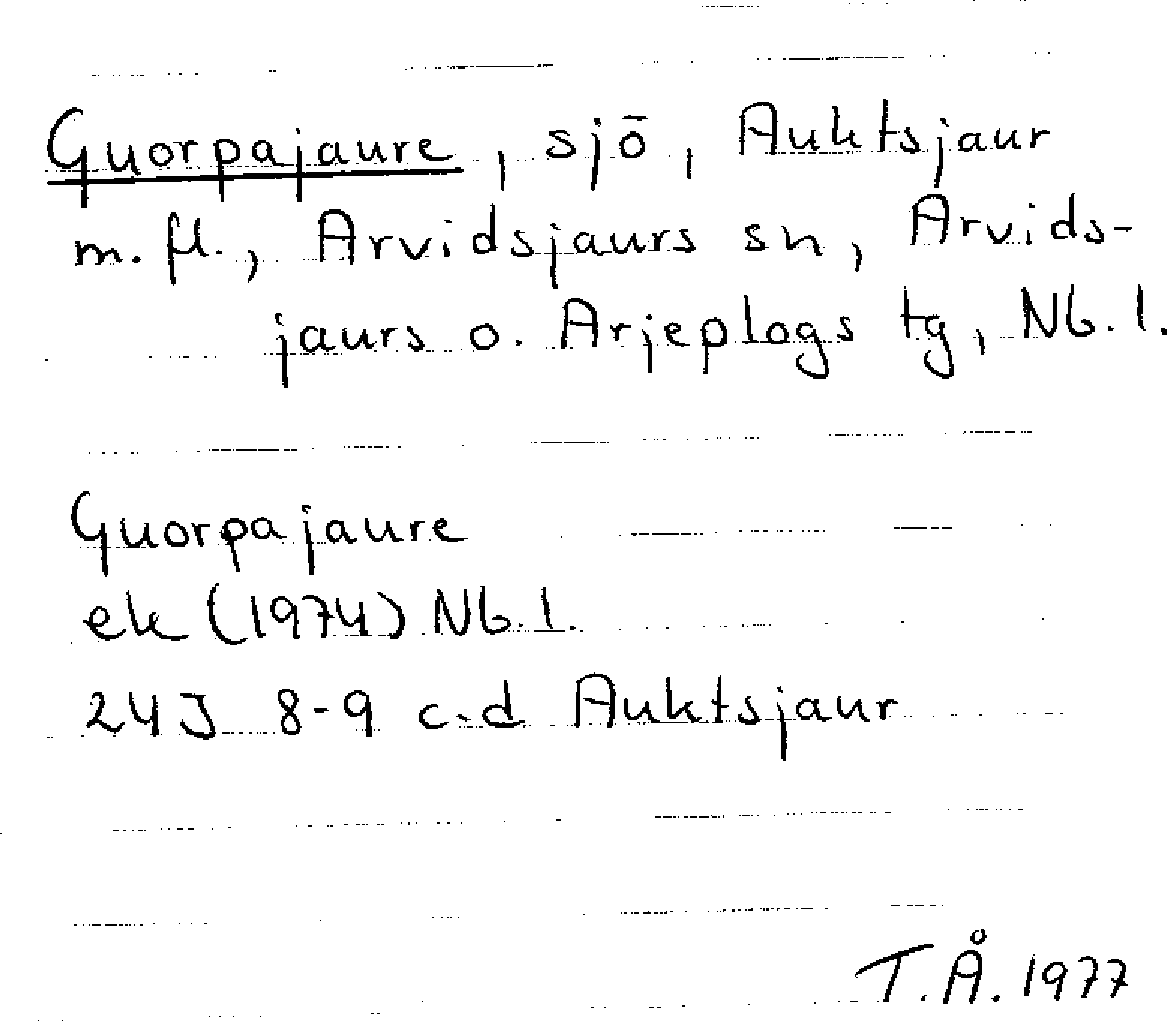 Guorpajaure, sjö, Auktsjaur
m. fl., Arvidsjaurs sn, Arvids-
jaurs o. Arjeplogs tg, Nb. l.
Guorpajaure
ek (1974) Nb. l.
24J 8-9 c-d Auktsjaur
T.Å. 1977